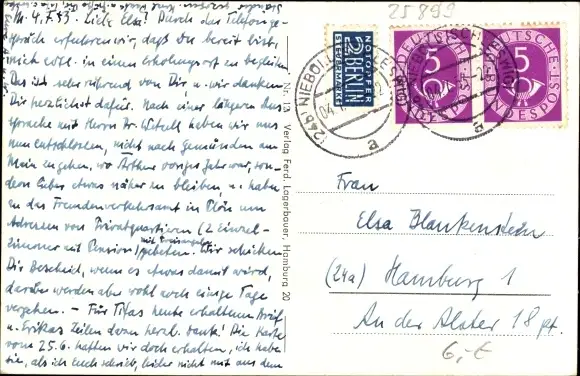 4.7.53. Liebe Elsa! Durch das Telefonge-
spräch erfuhren wir, daß Du bereit bist,
mich evtl. in einen Erholungsort zu begleiten.
Das ist sehr rührend von Dir u. wir danken
Dir herzlichst dafür. Nach einer längeren Aus-
sprache mit Herrn Dr. haben wir uns
nun entschlossen, nicht nach Gemünden am
Main zu gehen, wo Arthur voriges Jahr war, son-
dern lieber etwas näher zu bleiben, u. haben
an das Fremdenverkehrsamt in Plön um
Adressen von Privatquartieren (2 Einzel-
zimmer mit Pension) gebeten. Wir schicken
mit Preisangabe
Dir Bescheid, wenn es etwas damit wird,
darüber werden aber wohl noch einige Tage
vergehen. – Für Titas heute erhaltenen Brief
u. Erikas Zeilen darin herzl. Dank! Die Karte
vom 25.6. hatten wir doch erhalten, ich habe
sie, als ich Euch schrieb, leider nicht mit aus dem
Nr. 113 Verlag Ferd. Lagerbauer, Hamburg 20
25899
NOTOPFER
2 BERLIN
STEUERMARKE
DEUTSCHE
BUNDESPOST
5
DEUTSCHE
BUNDESPOST
5
(24b) NIEBÜLL
Frau
Elsa Blankenstein
(24a) Hamburg 1
An der Alster 18 pt.
6,-€